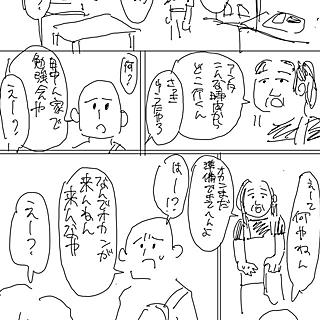 アンタ
こんな時間から
どこ行くん
さっき
ゆったやろ
何?
田中ん家で
勉強会や
えー?
えーて
何やねん
オカンまだ
準備できてへんよ
はー!?
なんでオカンが
来んねん
来んなや
えー?